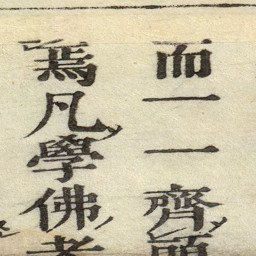 而一一齊頭
焉凡學佛者